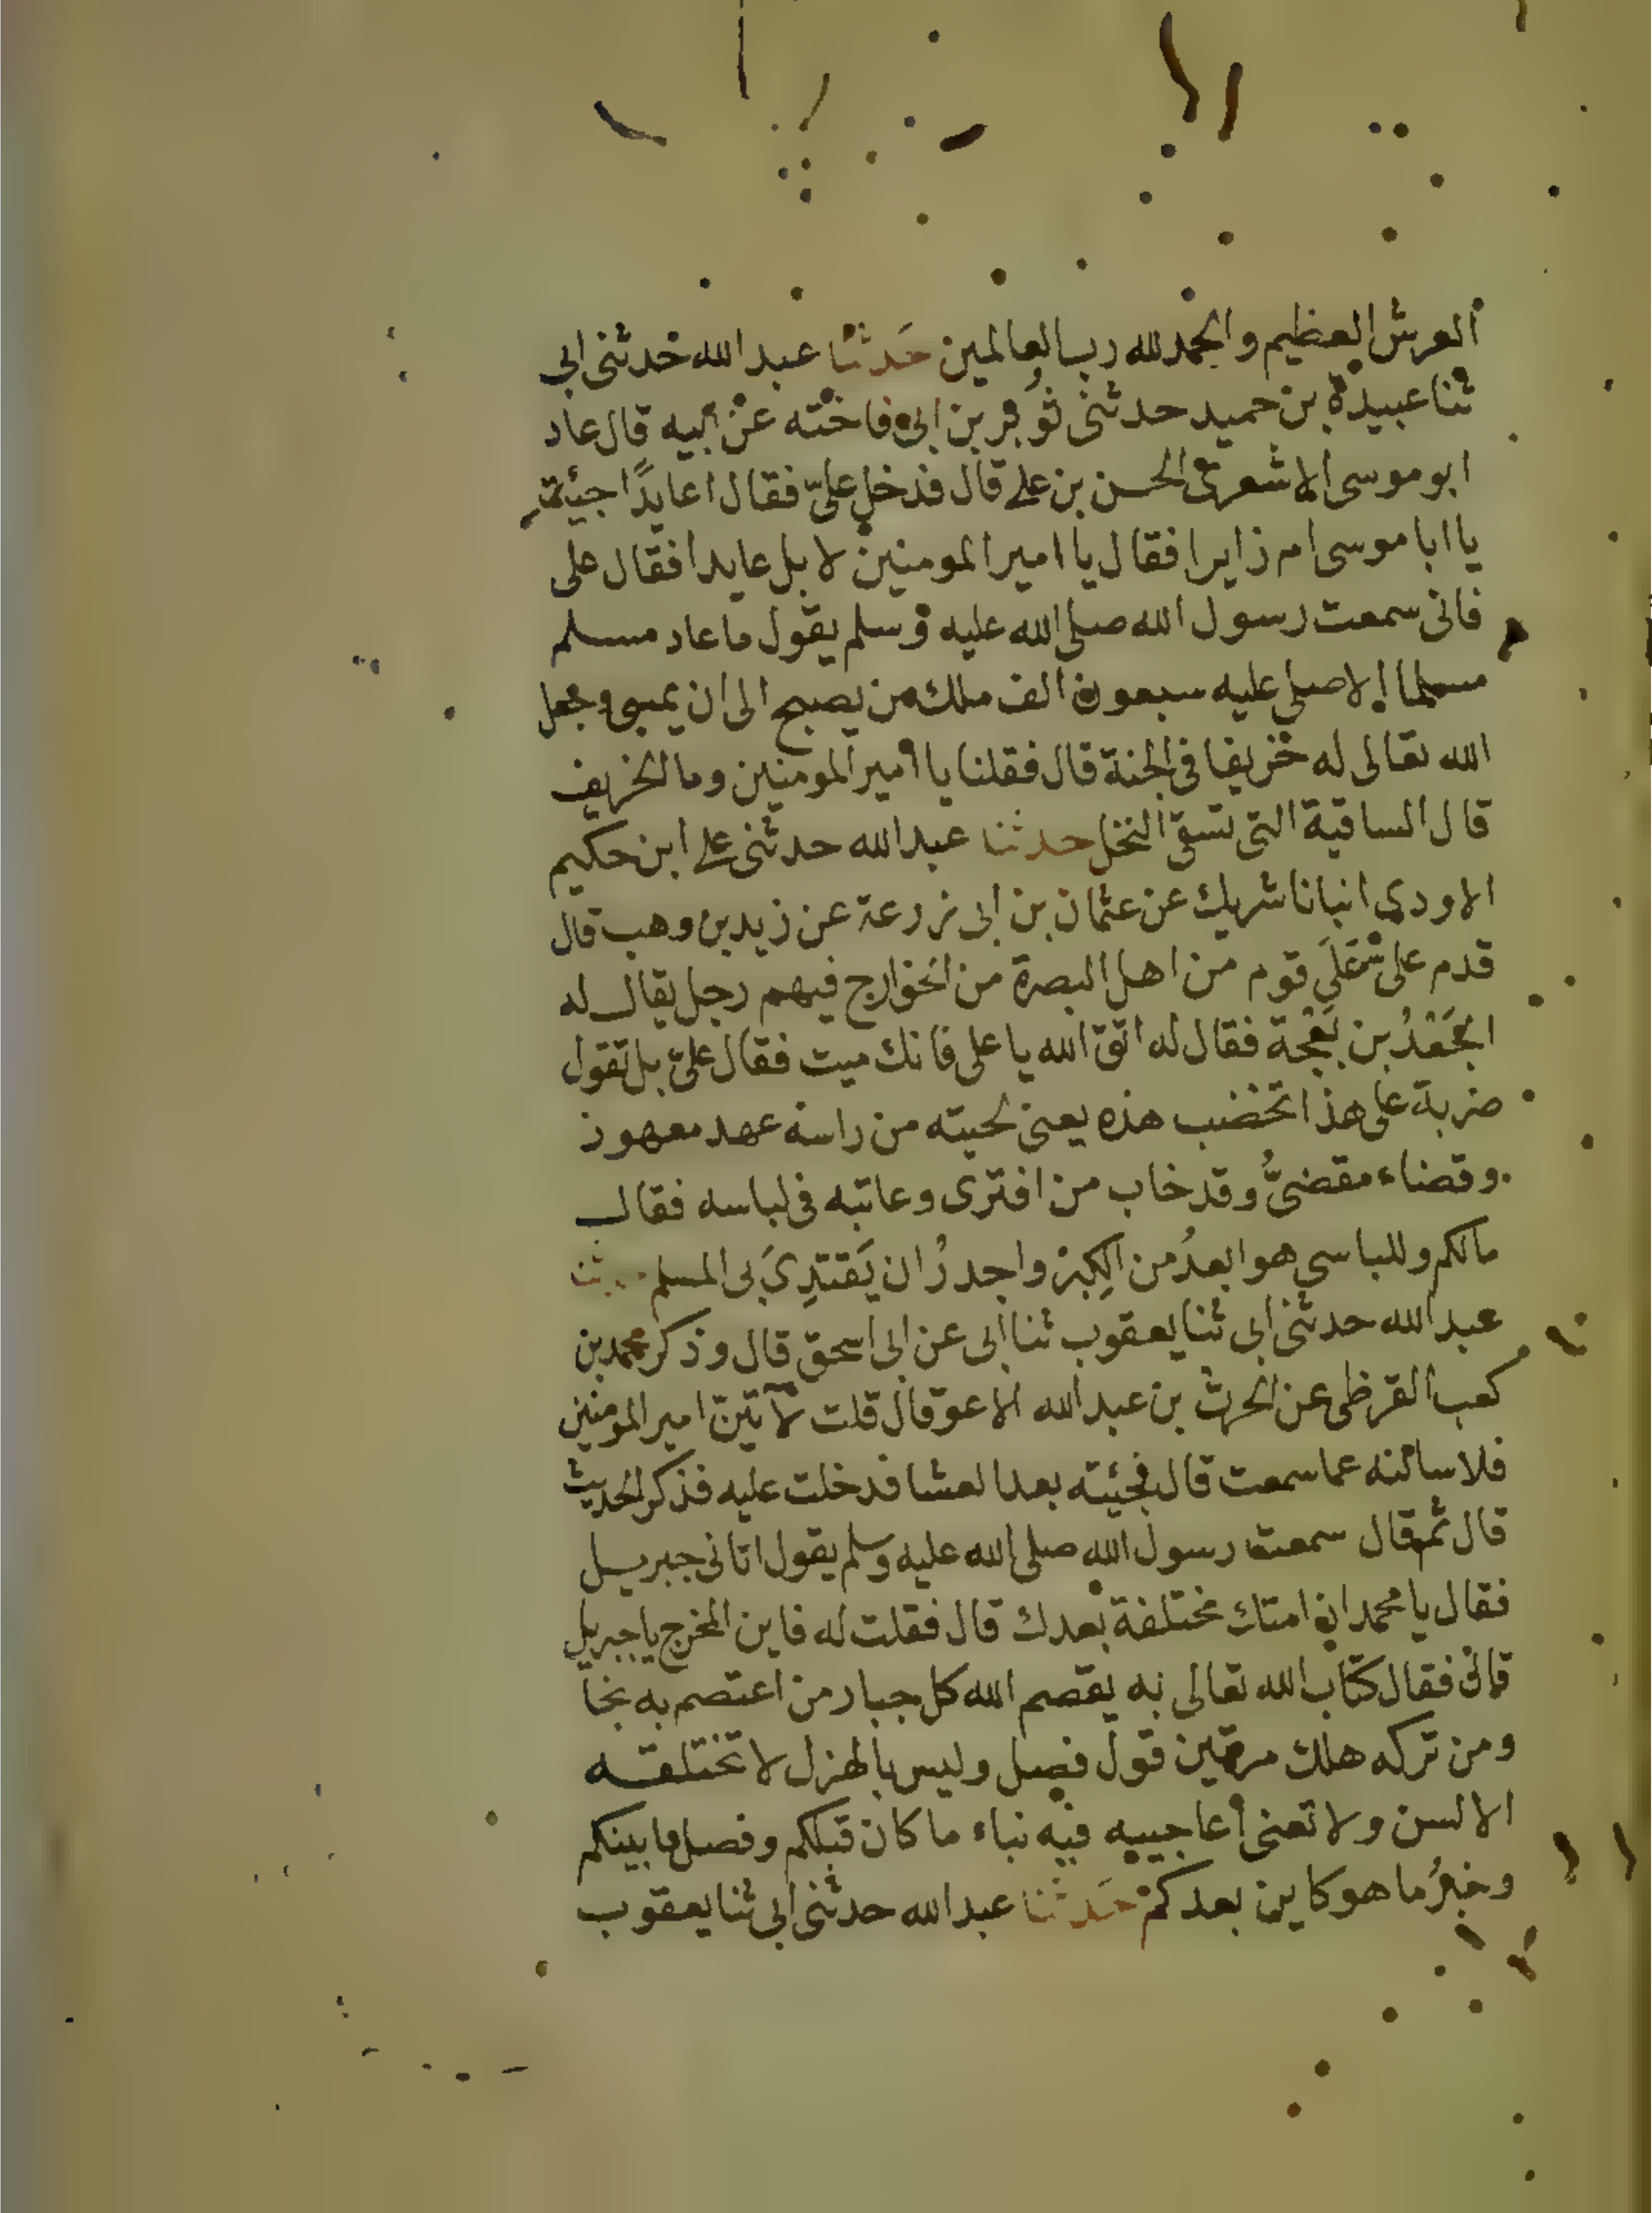 العرش العظيم والحمد لله رب العالمين حَدثنا عبد الله حدثنى ابى
ثنا عبيدة بن حميد حدثنى ثُوير بن ابى فاخته عن ابيه قال عاد
ابو موسى الاشعرى الحسن بن على قال فدخل علىّ فقال اعايدًا جيئت
يا ابا موسى ام زايرا فقال يا امير المومنين لا بل عايدا فقال على
فانى سمعت رسول الله صلى الله عليه وسلم يقول ما عاد مسلم
مسلما الا صلى عليه سبعون الف ملك من يصبح الى ان يمسى وجعل
الله تعالى له خريفا فى الجنة قال فقلنا يا امير المومنين وما الخريف
قال الساقية التى تسقى النخل حدثنا عبد الله حدثنى على ابن حكيم
الاودى انبانا شريك عن عثمان بن ابى زرعة عن زيد بن وهب قال
قدم على قوم من اهل البصرة من الخوارج فيهم رجل يقال له
الجَعْدُ بن بَعْجة فقال له اتق الله يا على فانك ميت فقال علىّ بل تقول
ضربة على هذا تخضب هذه يعنى لحيته من راسه عهد معهود
وقضاء مقضىُّ وقد خاب من افترى وعاتبه فى لباسه فقال
مالكم وللباسى هو ابعدُ من الكِبْر واجدرُ ان يَقتدِىَ بى المسلم حدثنا
عبد الله حدثنى ابى ثنا يعقوب ثنا ابى عن ابى اسحق قال وذكر محمد بن
كعب القرظى عن الحرث بن عبد الله الاعو قال قلت لآتينّ امير المومنين
فلاسالنه عما سمعت قال فجئيته بعد العشا فدخلت عليه فذكر الحديث
قال ثم قال سمعت رسول الله صلى الله عليه وسلم يقول اتانى جبريل
فقال يا محمد ان امتك مختلفة بعدك قال فقلت له فاين المخرج يا جبريل
قال فقال كتاب الله تعالى به يقصم الله كل جبار من اعتصم به نجا
ومن تركه هلك مرتين قول فصل وليس بالهزل لا تختلقه
الالسن ولا تفنى اعاجيبه فيه نباء ما كان قبلكم وفصل ما بينكم
وخبرُ ما هو كاين بعدكم حَدثنا عبد الله حدثنى ابى ثنا يعقوب